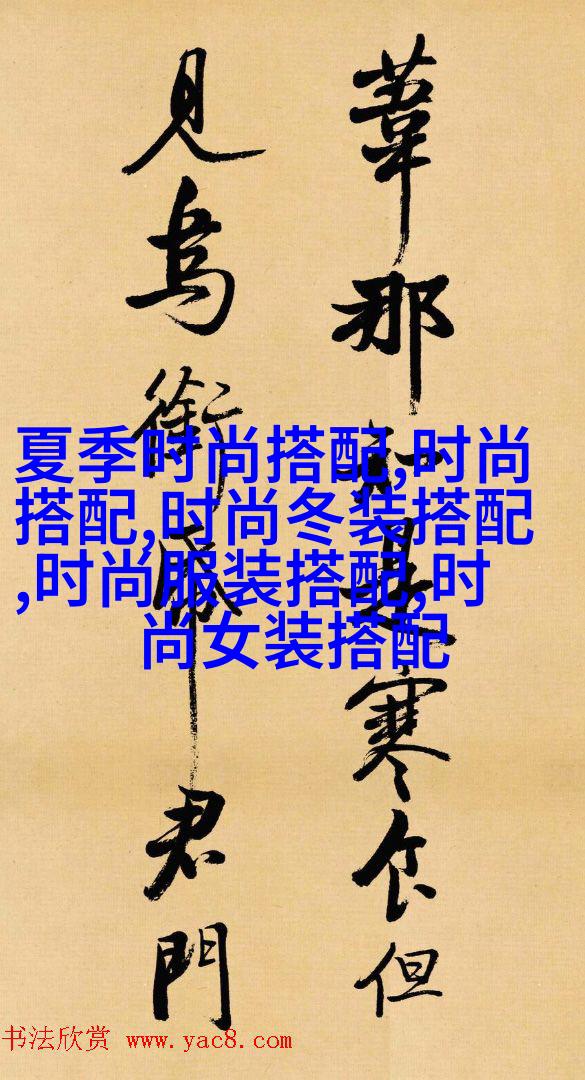 葦那知是寒食但
見烏銜帋君門
夏季时尚搭配,时尚
搭配,时尚冬装搭配
,时尚服装搭配,时
尚女装搭配
书法欣赏 www.yac8.com